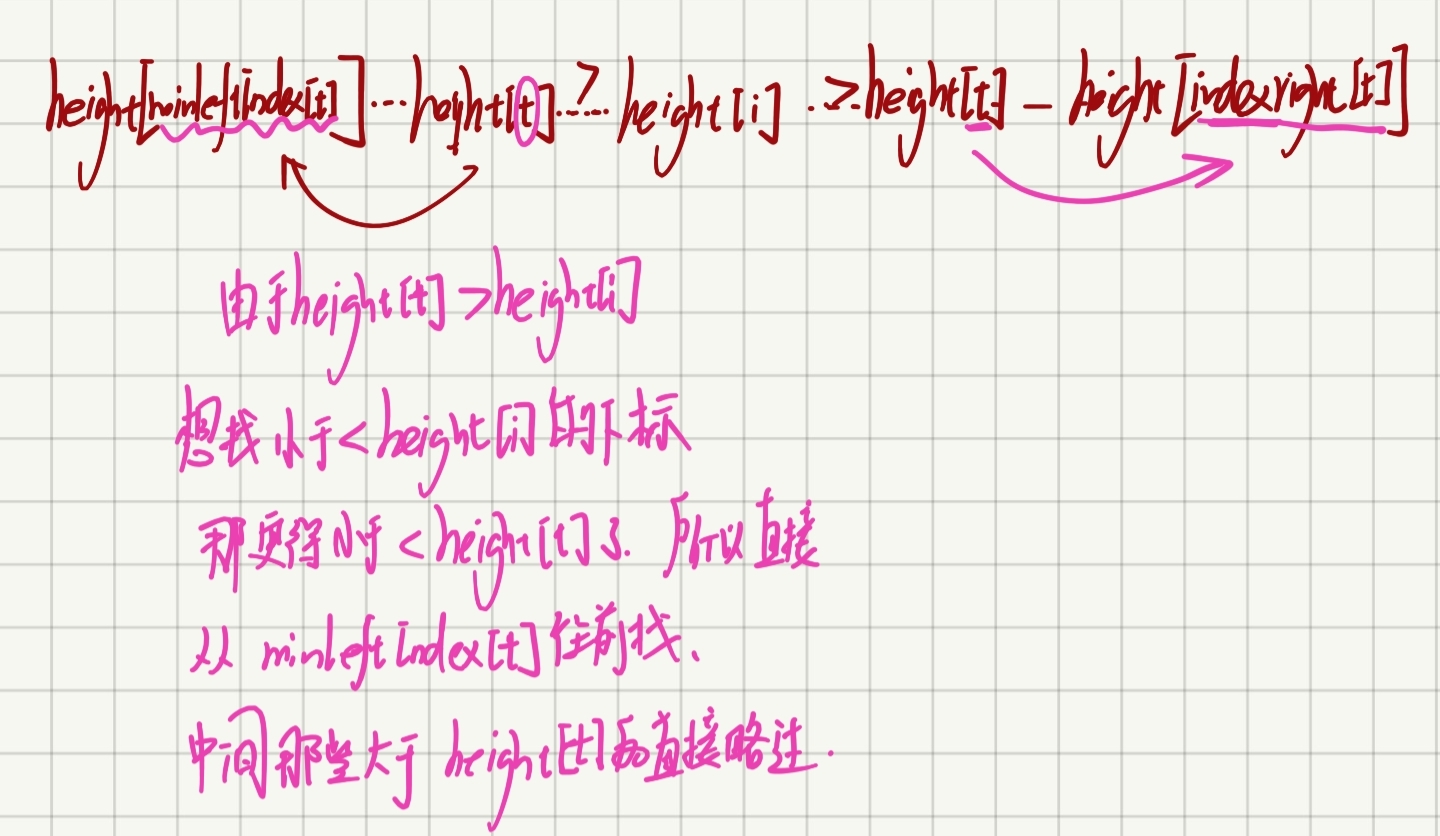 height[minLeftIndex[t]] ... height[t] ...> ... height[i] ..>.. height[t] — height[indexright[t]]
由于height[t]>height[i]
想找小于<height[i]的下标
那更得小于<height[t]了. 所以直接
从 minLeftIndex[t]往前找.
中间那些大于 height[t]的直接略过.